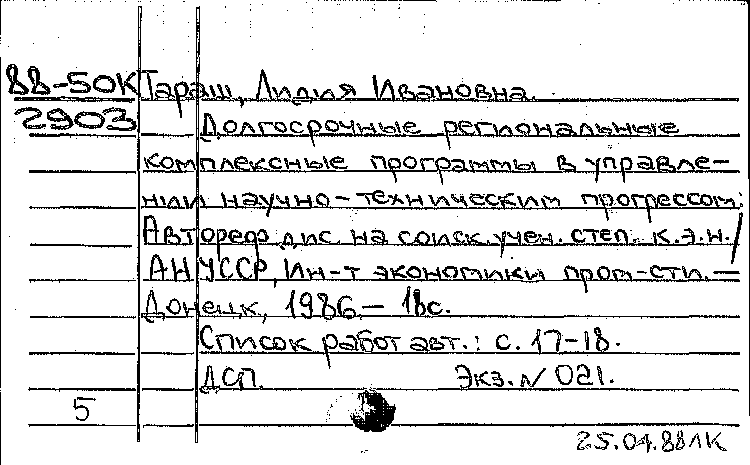 88-50К Тараш, Лидия Ивановна.
2903 Долгосрочные региональные
комплексные программы в управле-
нии научно-техническим прогрессом:
Автореф. дис. на соиск. учен. степ. к.э.н. /
АН УССР, Ин-т экономики пром-сти. —
Донецк, 1986. — 18с.
Список работ авт.: с. 17-18.
ДСП. Экз. N 021.
5
25.04.88 ЛК